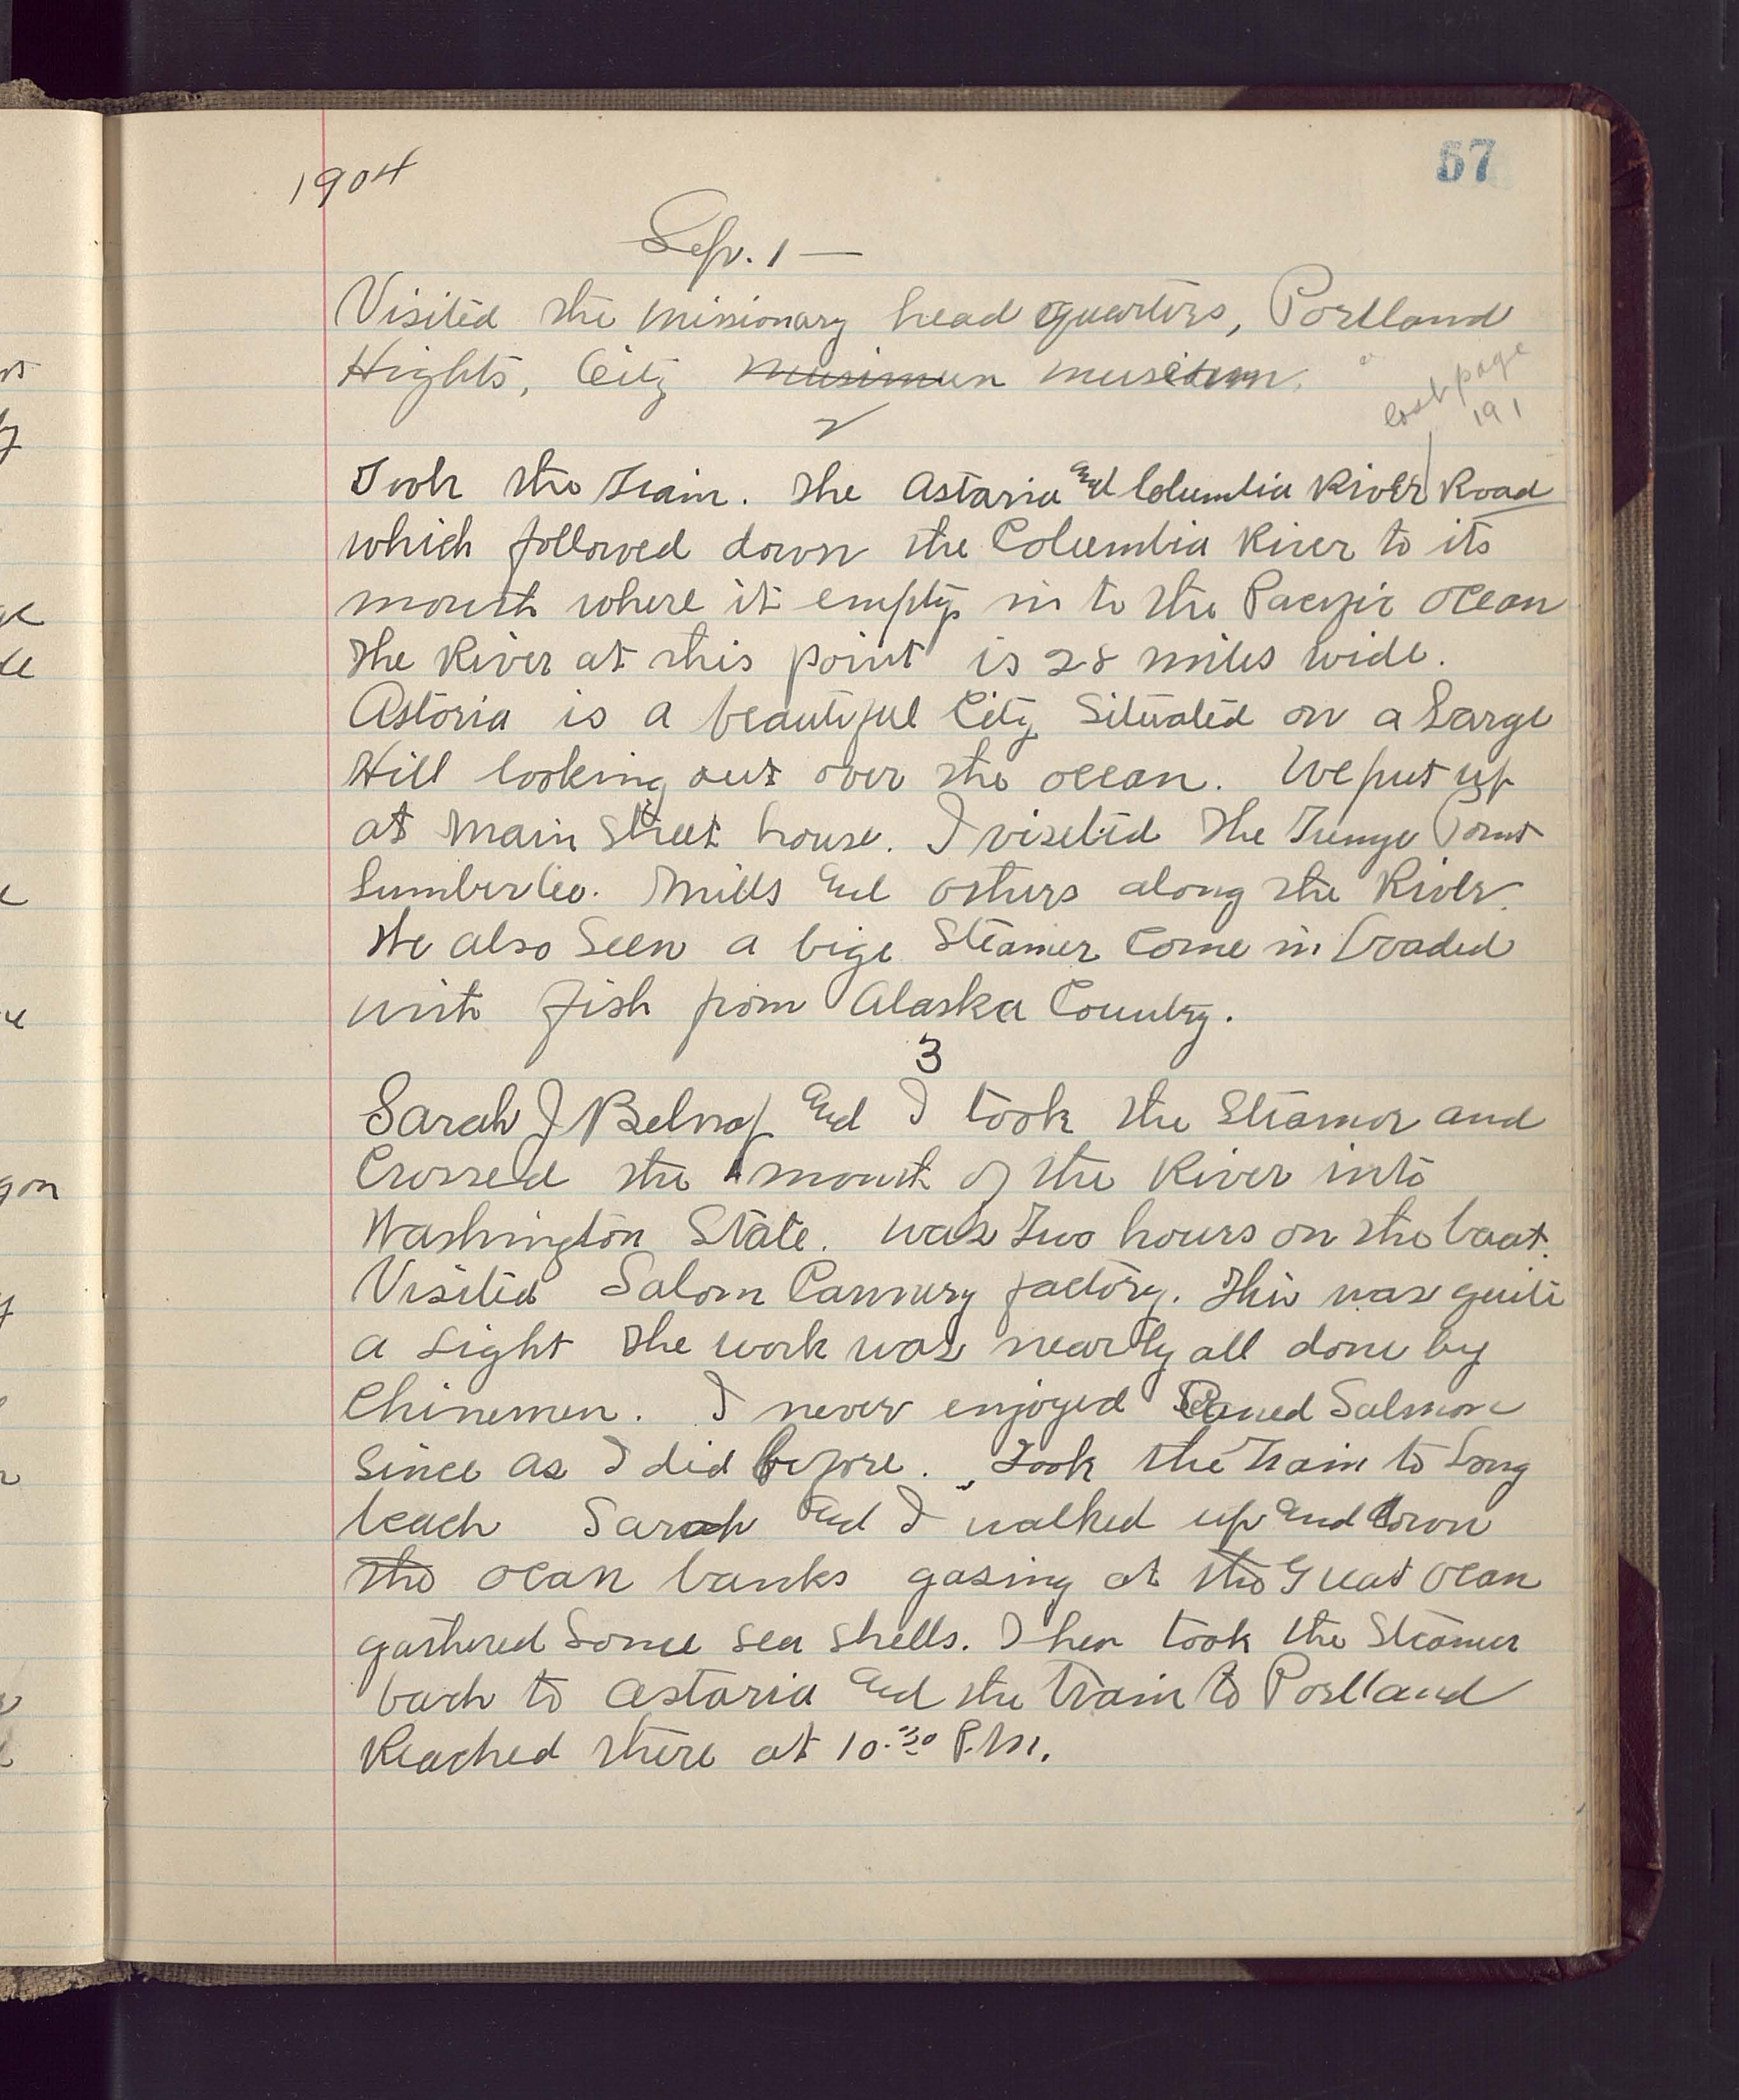 57
1904
Sep. 1 —
Visited the missionary head quarters, Portland
Hights, City musimun museum.
last page
191
2
Took the train. The Astaria and Columbia River Road
which followed down the Columbia River to its
mouth where it emptys in to the Pacific ocean
the River at this point is 28 miles wide.
Astoria is a beautiful City Situated on a Large
Hill looking out over the ocean. We put up
at Main Street house. I viseted The Tunge Point
Lumber Co. Mills and others along the River.
We also Seen a bige Steamer Come in Loaded
with fish from Alaska Country.
3
Sarah J Belnap and I took the Steamor and
Crossed the mouth of the River into
Washington State. was Two hours on the boat.
Visited Salom Cannery factory. This was quite
a sight The work was nearly all done by
Chinemen. I never enjoyed Caned Salmon
Since as I did before. Took the train to Long
beach Sarah and I walked up and down
the ocan banks gasing at the Great ocan
gathered Some sea shells. Then took the Steamer
back to Astaria and the train to Portland
Reached there at 10.30 P.M.
gon